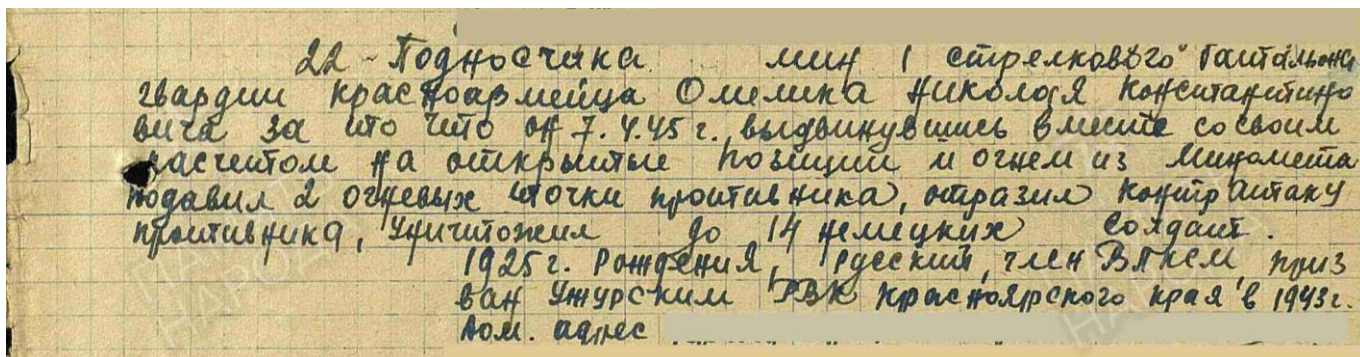 22 - Подносчика мин 1 стрелкового батальона
гвардии красноармейца Омелика Николая Константино
вича за то что он 7.4.45 г. выдвинувшись вместе со своим
расчетом на открытые позиции и огнем из миномета
подавил 2 огневых точки противника, отразил контратаку
противника, уничтожил до 14 немецких солдат.
1925 г. рождения, русский, член ВЛКСМ, приз
ван Ужурским РВК Красноярского края в 1943 г.
Дом. адрес